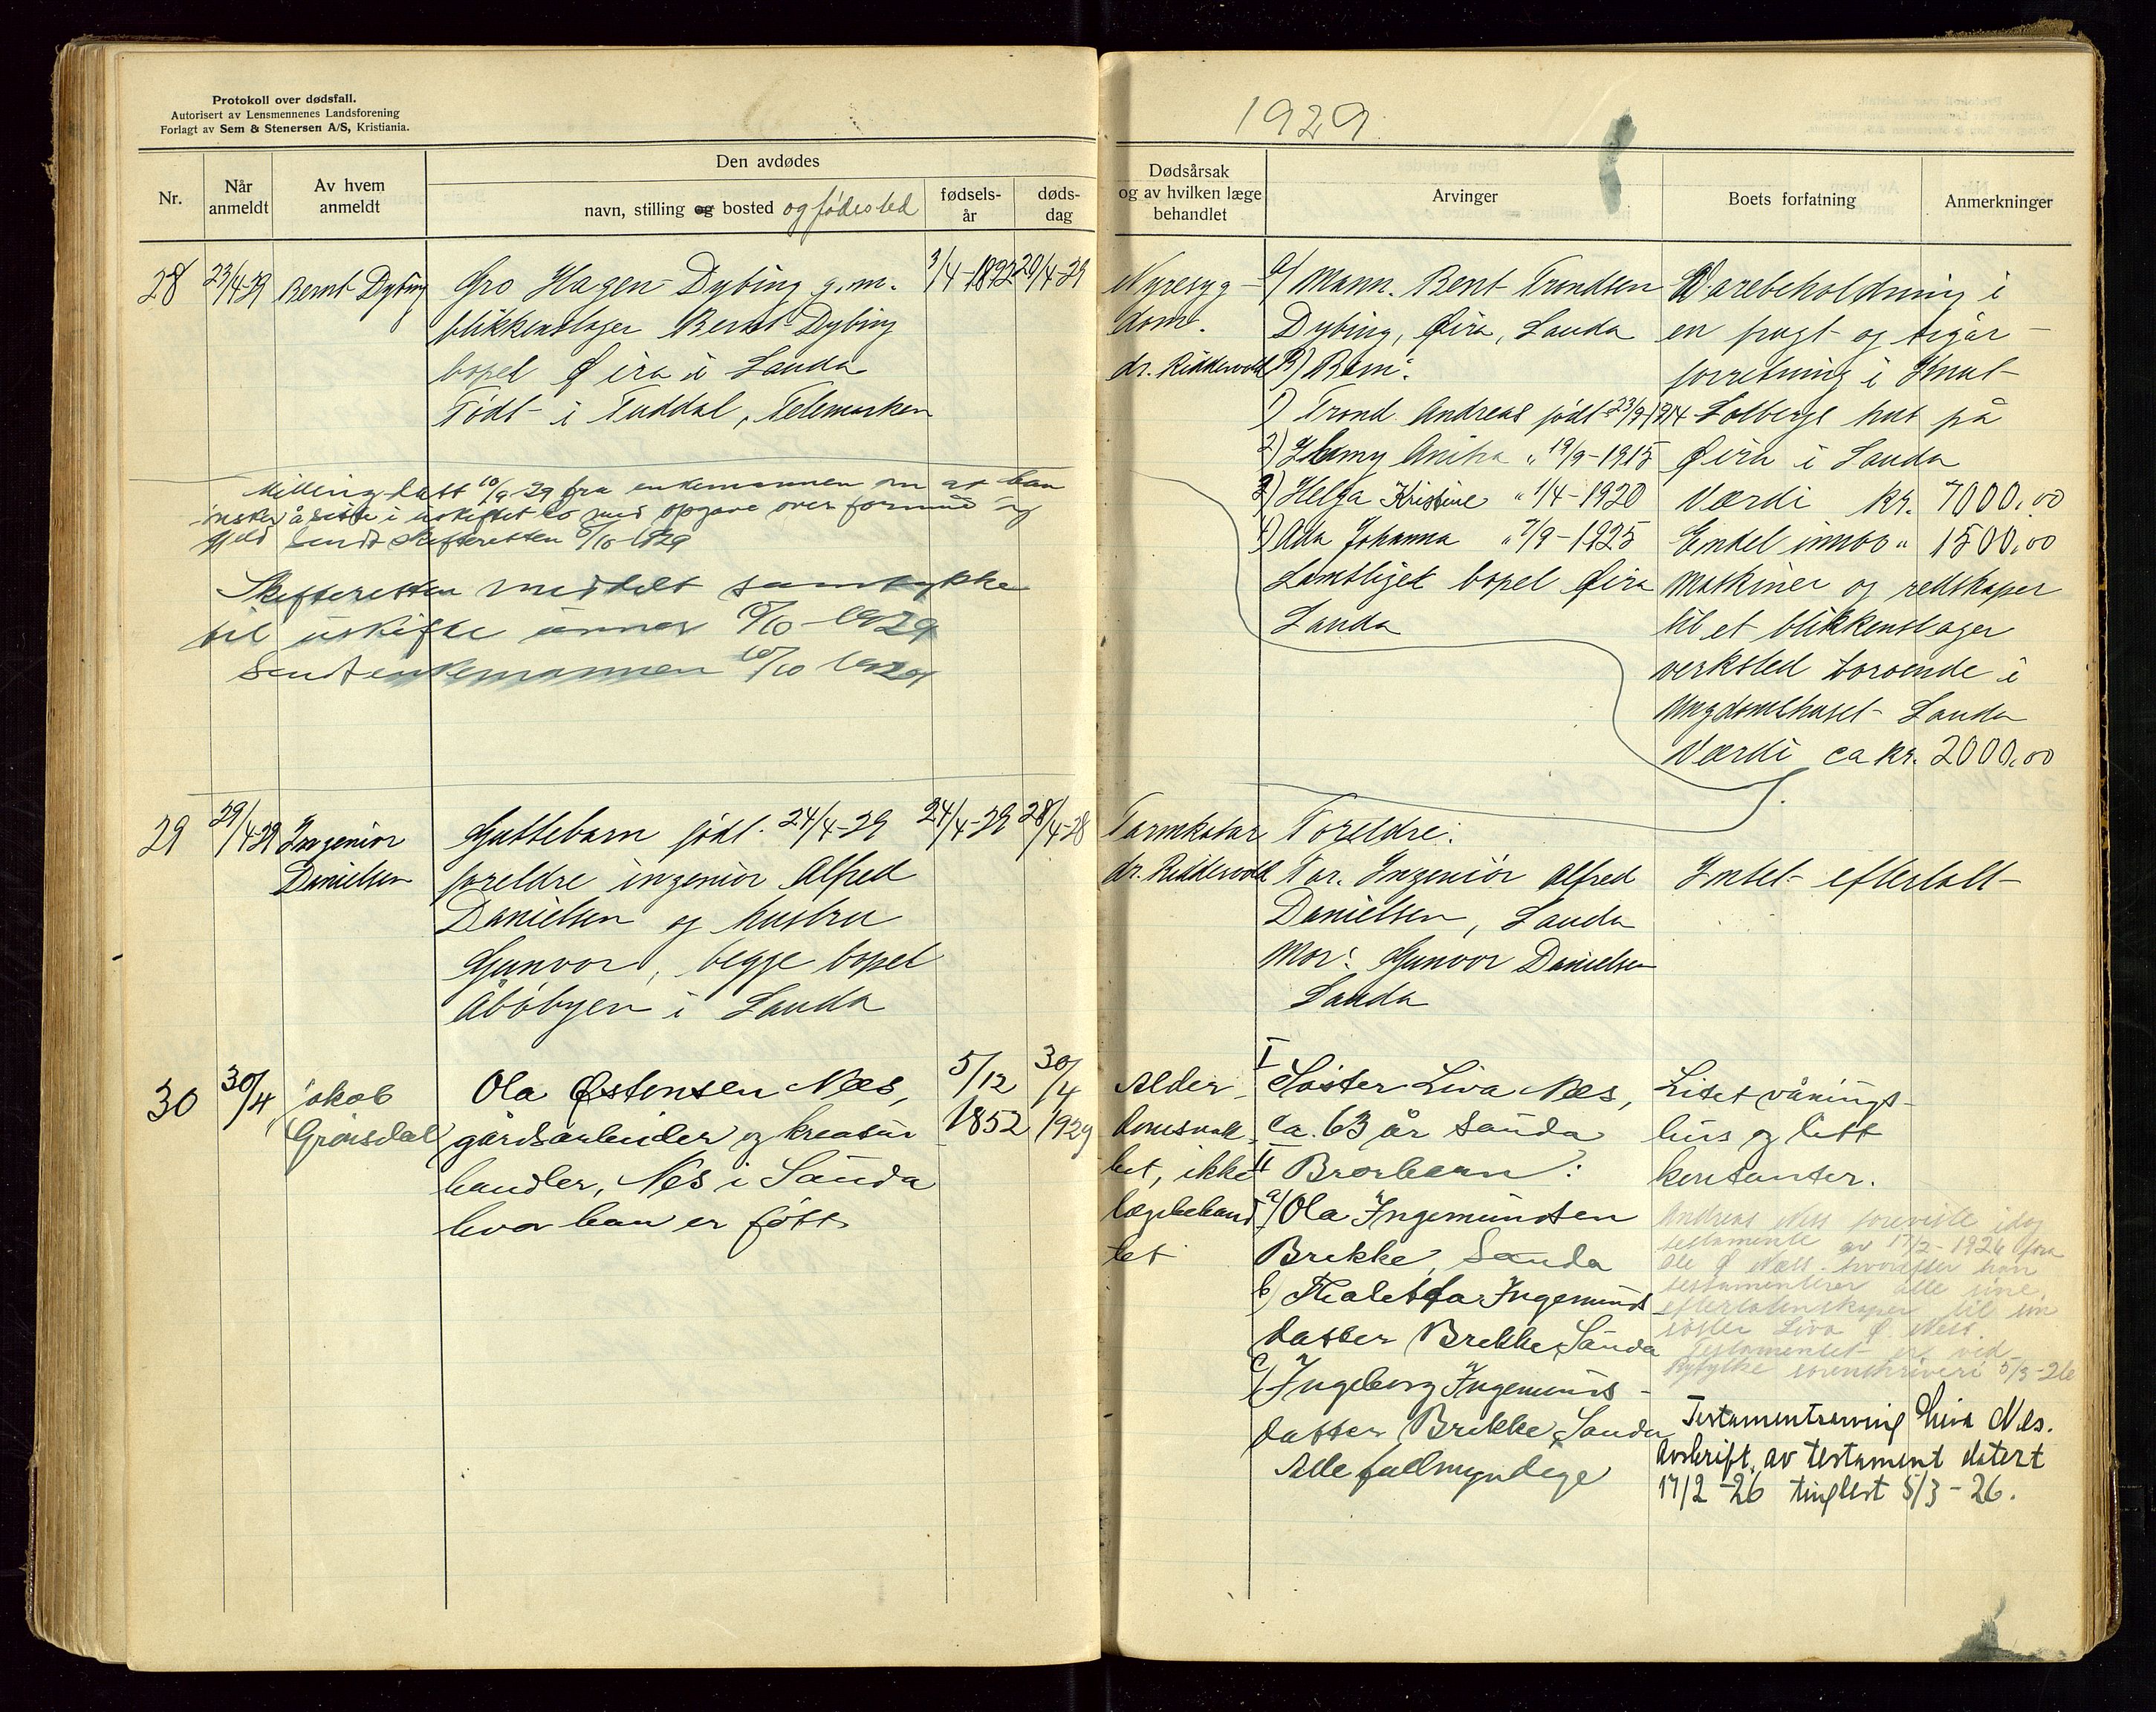 Protokoll over dødsfall.
Autorisert av Lensmennenes Landsforening
Forlagt av Sem & Stenersen A/S, Kristiania.
Nr.
Når anmeldt
Av hvem anmeldt
Den avdødes
navn, stilling og bosted og fødested
fødsels-år
døds-dag
28
23/4-29
Bernt Dybing
Gro Hagen Dybing g.m.
blikkenslager Bernt Dybing
bopel Øira i Sauda
Født i Tuddal, Telemarken
3/4-1892
20/4-29
Melding hatt 10/9-29 fra enkemannen om at han
ønsker å sitte i uskiftet bo med opgave over formue og
gjeld Sendt skifteretten 5/10-1929
Skifteretten meddelt samtykke
til uskifte 9/10-1929
Sendt enkemannen 10/10 1929
29
29/4-29
Ingeniør
Danielsen
Guttebarn født 24/4-29
foreldre ingeniør Alfred
Danielsen og hustru
Gunvor, begge bopel
Åbøbyen i Sauda
24/4-29
28/4-28
30
30/4
Jakob
Grønsdal
Ola Østensen Nes,
gårdsarbeider og kreatur
handler, Nes i Sauda
hvor han er født
5/12
1852
30/4
1929
1929
Dødsårsak
og av hvilken læge
behandlet
Arvinger
Boets forfatning
Anmerkninger
Nyresyg-
dom.
dr. Ridderwold
a/ Mann. Bernt Trondsen
Dybing, Øira, Sauda
B) Barn:
1) Trond Andreas født 23/9-1914
2) Anita " 19/9-1915
3) Helga Kristine " 1/4-1920
4) Ada Johanna " 7/9-1925
Samtliget bopel Øira
Sauda
Varebeholdning i
en frugt og sigar-
forretning i Knut
Solbergs hus på
Øira i Sauda
Værdi kr. 7000,00
Enkel innbo " 1500,00
Maskiner og redskaper
til et blikkenslager
verksted beroende i
Ungdomshuset Sauda
Værdi ca kr. 2000,00
Tarmkatar
dr. Ridderwold
Foreldre:
Far. Ingeniør Alfred
Danielsen, Sauda
Mor: Gunvor Danielsen
Sauda
Intet efterlatt
Alder-
domsvak-
het, ikke
lægebehand
let
I Søster Liva Nes,
ca. 63 år Sauda
II Brorbarn:
a/ Ola Ingemundsen
Brekke, Sauda
b) Ingemunds
datter Brekke, Sauda
c/ Ingeborg Ingemunds-
datter Brekke, Sauda
Alle fullmyndige
Litet vånings-
hus og litt
kontanter.
Andreas Nes foreviste idag
testamente av 17/2-1926 fra
Ole Ø Næss hvorefter han
testamenterer alle sine
efterlatenskaper til sin
søster Liva Ø. Ness.
Testamentet er ved
Ryfylke sorenskriveri 5/3-26
Testamentsarving Liva Nes.
Avskrift av testament datert
17/2-26 tinglest 5/3-26.